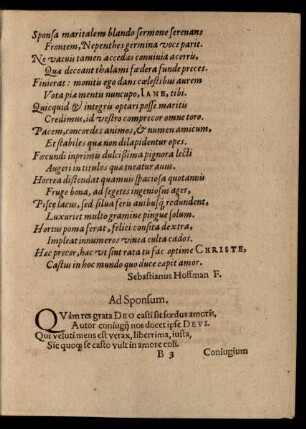 Sponsa maritalem blando sermone serenans
Frontem, Nepenthes germina voce parit.
Ne vacuis tamen accedas conuiuia acerris,
Qua deceant thalami fœdera funde preces.
Finierat: monitis ego dans cælestibus aurem
Vota piæ mentis nuncupo, IANE, tibi.
Quicquid & integris optari posse maritis
Credimus, id vestro comprecor omne toro.
Pacem, concordes animos, & numen amicum,
Et stabiles quæ non dilapidentur opes.
Fœcundi inprimis dulcissima pignora lecti
Augeri in titulos quæ tueatur auus.
Horrea distendat quamuis spaciosa quotannis
Fruge bona, ad segetes ingeniosus ager,
Pisce lacus, sed silua feris auibusq́ redundent,
Luxuriet multo gramine pingue solum.
Hortus poma ferat, felici consita dextra,
Impleat innumeros vinea culta cados.
Hæc precor, hæc vt sint rata tu fac optime CHRISTE,
Castus in hoc mundo quo duce capit amor.
Sebastianus Hoffman F.
Ad Sponsum.
QVàm res grata DEO casti sit fœdus amoris,
Autor coniugij nos docet ipse DEVS.
Qui veluti mens est verax, liberrima, iusta,
Sic quoq; se casto vult in amore coli.
B 3 Coniugium